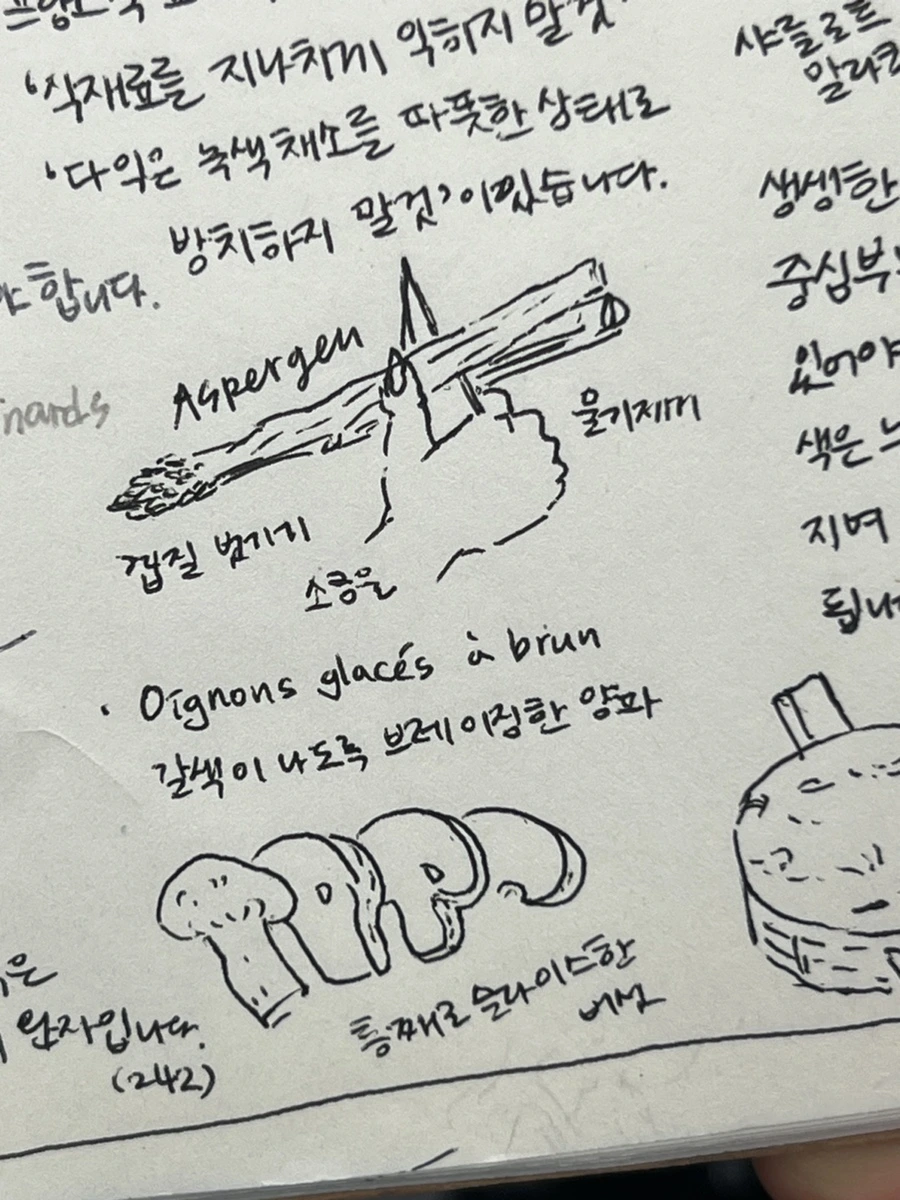 '식재료를 지나치게 익히지 말것'
'다익은 녹색채소를 따뜻한 상태로
방치하지 말것'이 있습니다.
합니다.
Aspergen
물기제거
껍질 벗기기
· Oignons glacés à brun
갈색이 나도록 브레이징한 양파
통째로 슬라이스한
버섯
완자입니다.
(242)
샤를로트
생싱한
중심부
있어야
색은
지며
됩니다